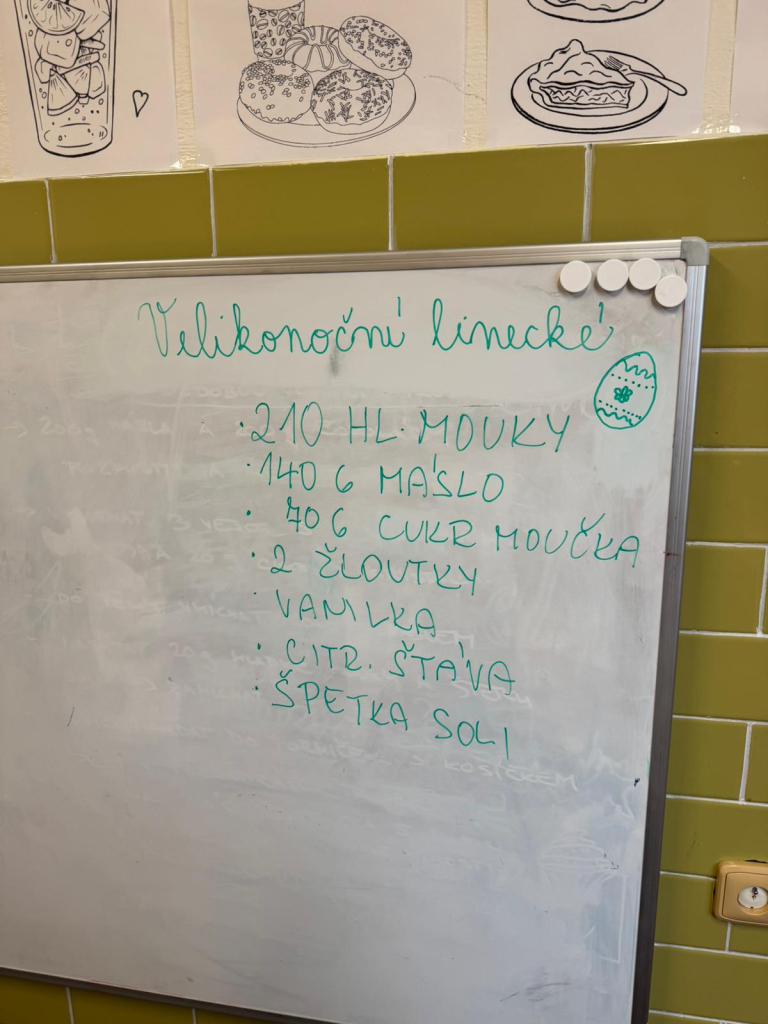 Velikonoční linecké
· 210 HL. MOUKY
· 140 G MÁSLO
· 70 G CUKR MOUČKA
· 2 ŽLOUTKY
· VANILKA
· CITR. ŠTÁVA
· ŠPETKA SOLI